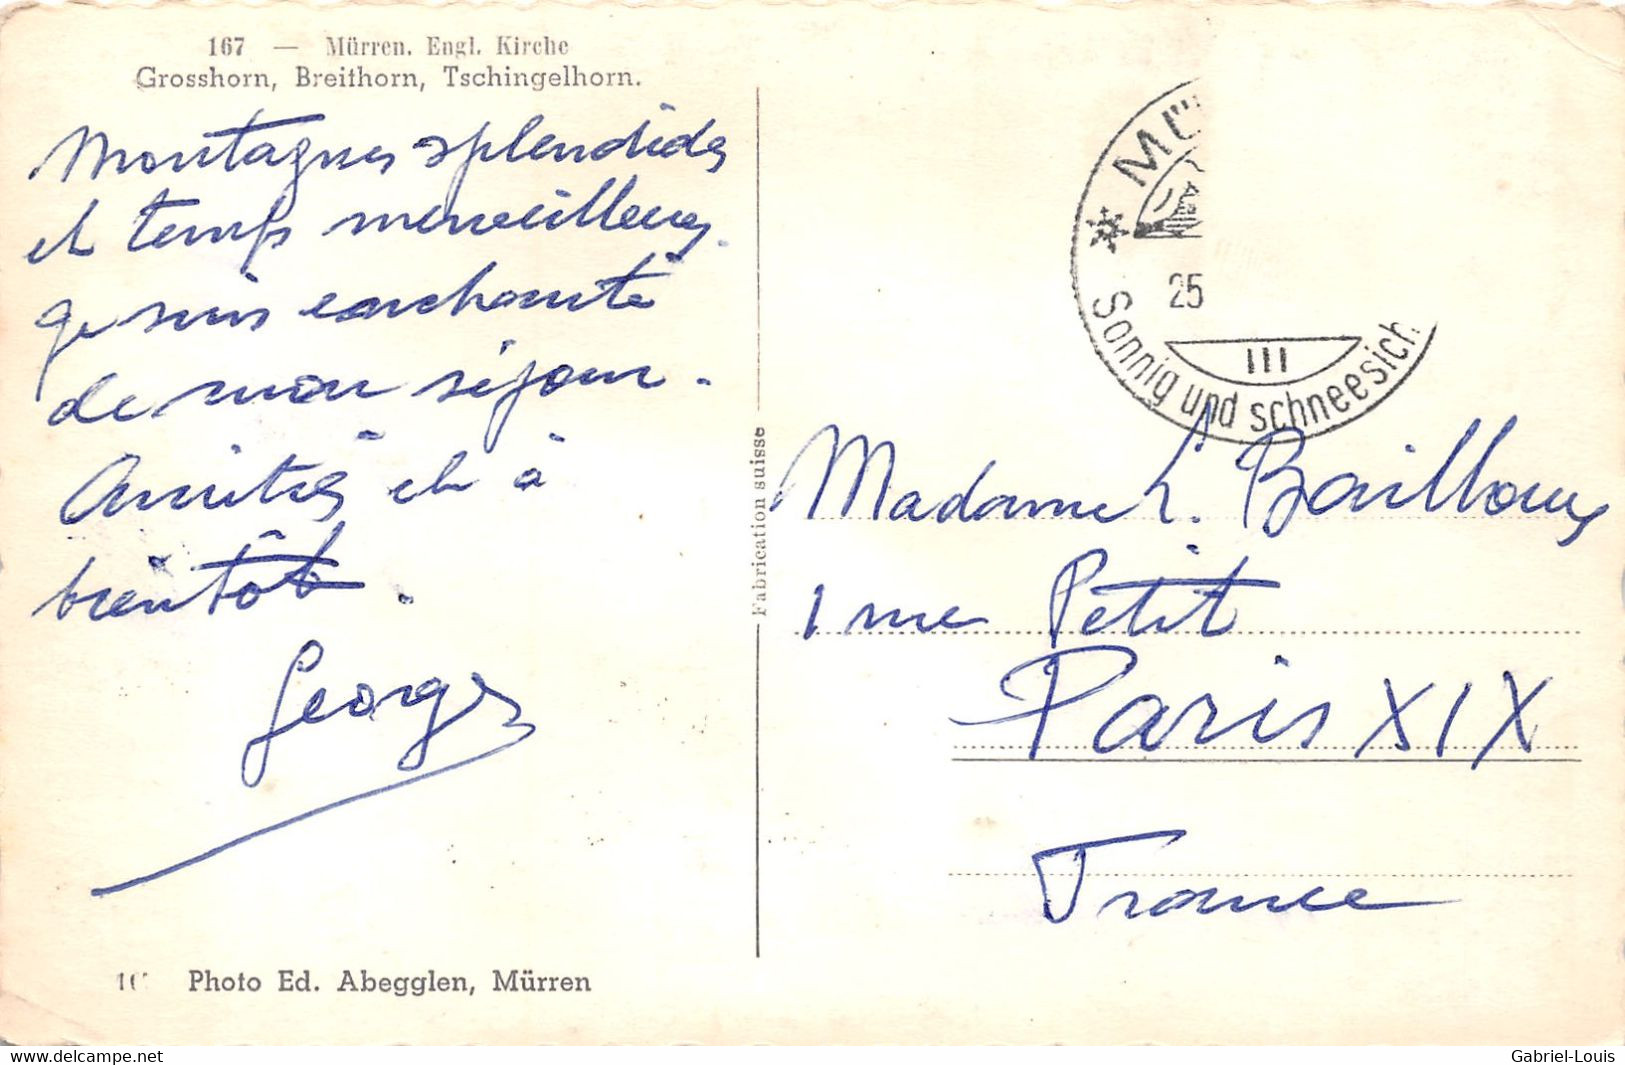 167 — Mürren. Engl. Kirche
Grosshorn, Breithorn, Tschingelhorn.
Montagnes splendides
et temps merveilleux.
Je suis enchanté
de mon séjour.
Amitiés et à
bientôt.
Georges
Photo Ed. Abegglen, Mürren
Fabrication suisse
* MÜ
25
III
Sonnig und schneesich
Madame L. Bailloux
1 rue Petit
Paris XIX
France
www.delcampe.net
Gabriel-Louis